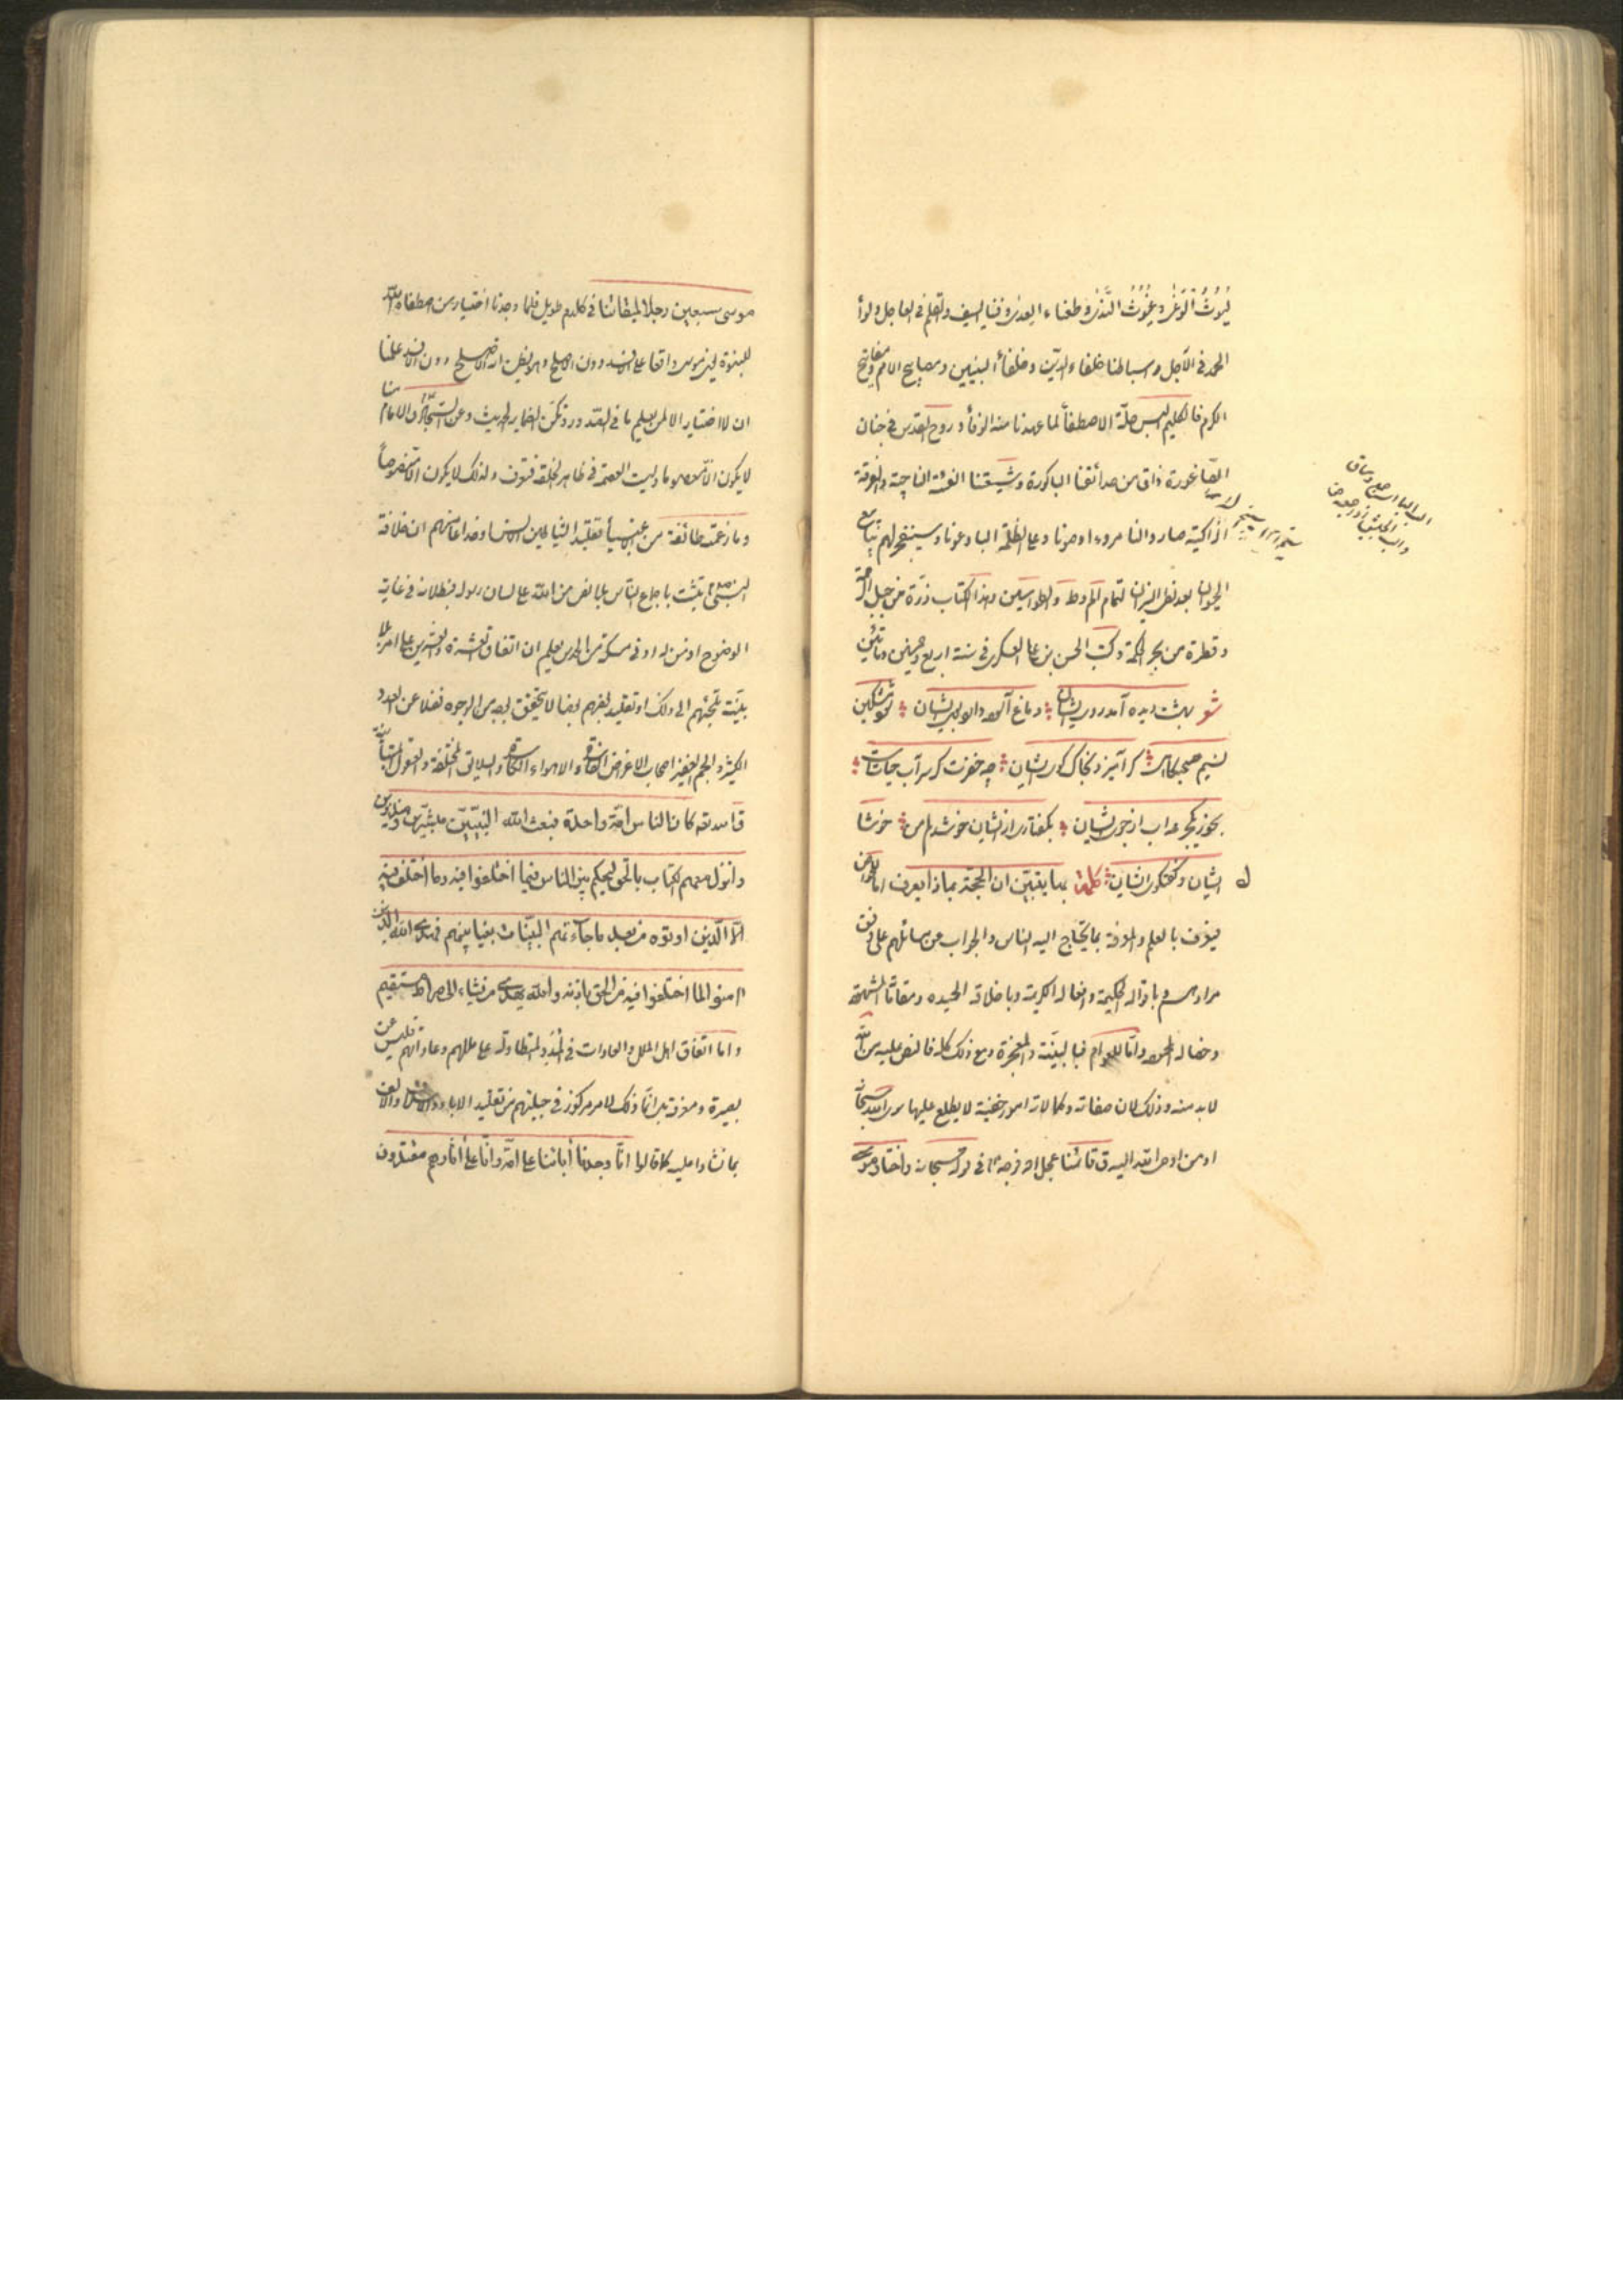 ليوث الوغى وغيوث الندى وطعناء العدى وفينا السيف والقلم في العاجل ولواء
الحمد في الآجل واسباطنا خلفاء الدين وخلفاء النبيين ومصابيح الامم ومفاتيح
الكرم فالكليم البس حلة الاصطفاء لما عهدنا منه الوفاء وروح القدس في جنان
الصاغورة ذاق من حدائقنا الباكورة وشيعتنا الفئة الناجية والفرقة
الزاكية صاروا لنا ردءا وصونا وعلى الظلمة البا وعونا وسينفجر لهم ينابيع
الحيوان بعد لظى النيران لتمام الم وطه والطواسين وهذا الكتاب ذرة من جبل الرحمة
وقطرة من بحر الحكمة وكتب الحسن بن علي العسكري في سنة اربع وخمسين ومأتين
بهشت ديده آمد روى ايشان دماغ آلوده
نسيم صبحگاهى بخاك كوى ايشان چه خضرست كز سر آب حيات
بخورد يكجرعه آب از جوى ايشان بگفتارى از ايشان خوشدلم من خوشا
ايشان وگفتگوى ايشان كلمة بها يتبين ان الحجة بماذا يعرف اما الخواص
فيعرف بالعلم والمعرفة بما يحتاج اليه الناس والجواب عن مسائلهم على وفق
مرادهم وباقواله الحكيمة وافعاله الكريمة وباخلاقه الحميدة
وخصاله المحمودة واما للعوام فبالبينة والمعجزة ومع ذلك كله فالنص عليه من الله
لابد منه وذلك لان صفاته وكمالاته امور خفية لا يطلع عليها سوى الله سبحانه
او من اوحى الله اليه قال قائمنا عجل الله فرجه في قوله سبحانه واختار موسى
موسى سبعين رجلا لميقاتنا في كلام طويل فلما وجدنا اختيار من اصطفاه الله
للنبوة يعني موسى واقعا على الافسد دون الاصلح وهو يظن انه الاصلح دون الافسد علمنا
ان لا اختيار الا لمن يعلم ما في الصدور وتكن الضماير الحديث وعن السجاد الامام منا
لا يكون الا معصوما وليست العصمة في ظاهر الخلقة فتعرف ولذلك لا يكون الا منصوصا
وما زعمته طائفة من ان خلافة
النبي تثبت باجماع الناس بلا نص من الله على لسان رسوله فبطلانه في غاية
الوضوح اذ من له ادنى مسكة من الحدس يعلم ان اتفاق العشرة والعشرين على امر بلا
بينة تلجئهم الى ذلك او تقليد لغيرهم ايضا لا يتحقق بوجه من الوجوه فضلا عن العدد
الكثير والجم الغفير اصحاب الاغراض والاهواء والسلايق المختلفة والعقول المتباينة
قال الله تعالى كان الناس امة واحدة فبعث الله النبيين مبشرين ومنذرين
وانزل معهم الكتاب بالحق ليحكم بين الناس فيما اختلفوا فيه وما اختلف فيه
الا الذين اوتوه من بعد ما جاءتهم البينات بغيا بينهم فهدى الله الذين
امنوا لما اختلفوا فيه من الحق باذنه والله يهدي من يشاء الى صراط مستقيم
واما اتفاق اهل الملل والعادات في المدد المتطاولة على مللهم وعاداتهم فليس عن
بصيرة ومعرفة بل انما ذلك لامر مركوز في جبلتهم من تقليد الاباء والاسلاف والالف
بما نشاوا عليه كما قالوا انا وجدنا اباءنا على امة وانا على اثارهم مقتدون